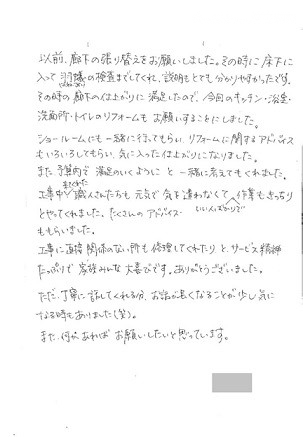 以前、廊下の張り替えをお願いしました。その時に床下に
入って羽蟻の検査までしてくれ、説明もとても分かりやすかったです。
その時の廊下の仕上がりに満足したので、今回のキッチン・浴室・
洗面所・トイレのリフォームもお願いすることにしました。
ショールームにも一緒に行ってもらい、リフォームに関するアドバイス
もいろいろしてもらい、気に入った仕上がりになりました。
また予算内で満足のいくようにと一緒に考えてもくれました。
工事中 来てくれた 職人さんたちも元気で気を遣わなくて いい人ばかりで 作業もきっちり
とやってくれました。たくさんのアドバイス
ももらいました。
工事に直接関係のない所も修理してくれたりとサービス精神
たっぷりで家族みんな大喜びです。ありがとうございました。
ただ、丁寧に話してくれる分、お話が長くなることが少し気に
なる時もありました(笑)。
また、何かあればお願いしたいと思っています。